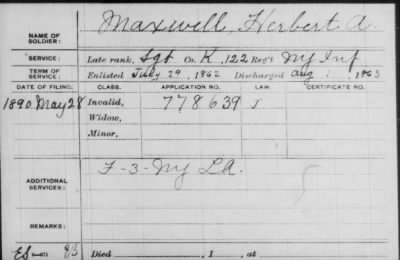 NAME OF SOLDIER: Maxwell, Herbert A.
SERVICE: Late rank, Sgt Co. K, 122 Reg't NY Inf
TERM OF SERVICE: Enlisted July 29, 1862 Discharged Aug 1, 1863
DATE OF FILING. CLASS. APPLICATION NO. LAW. CERTIFICATE NO.
1890 May 28 Invalid, 778639 J
Widow,
Minor,
ADDITIONAL SERVICES: F-3-NY LA.
REMARKS:
Died , 1 , at